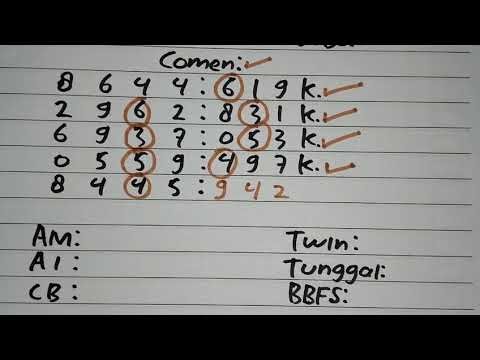 Comen:✓
8 6 4 4 : 6 1 9 K. ✓
2 9 6 2 : 8 3 1 K. ✓
6 9 3 7 : 0 5 3 K. ✓
0 5 5 9 : 4 9 7 K. ✓
8 4 4 5 : 9 4 2
AM: Twin:
AI: Tunggal:
CB: BBFS: